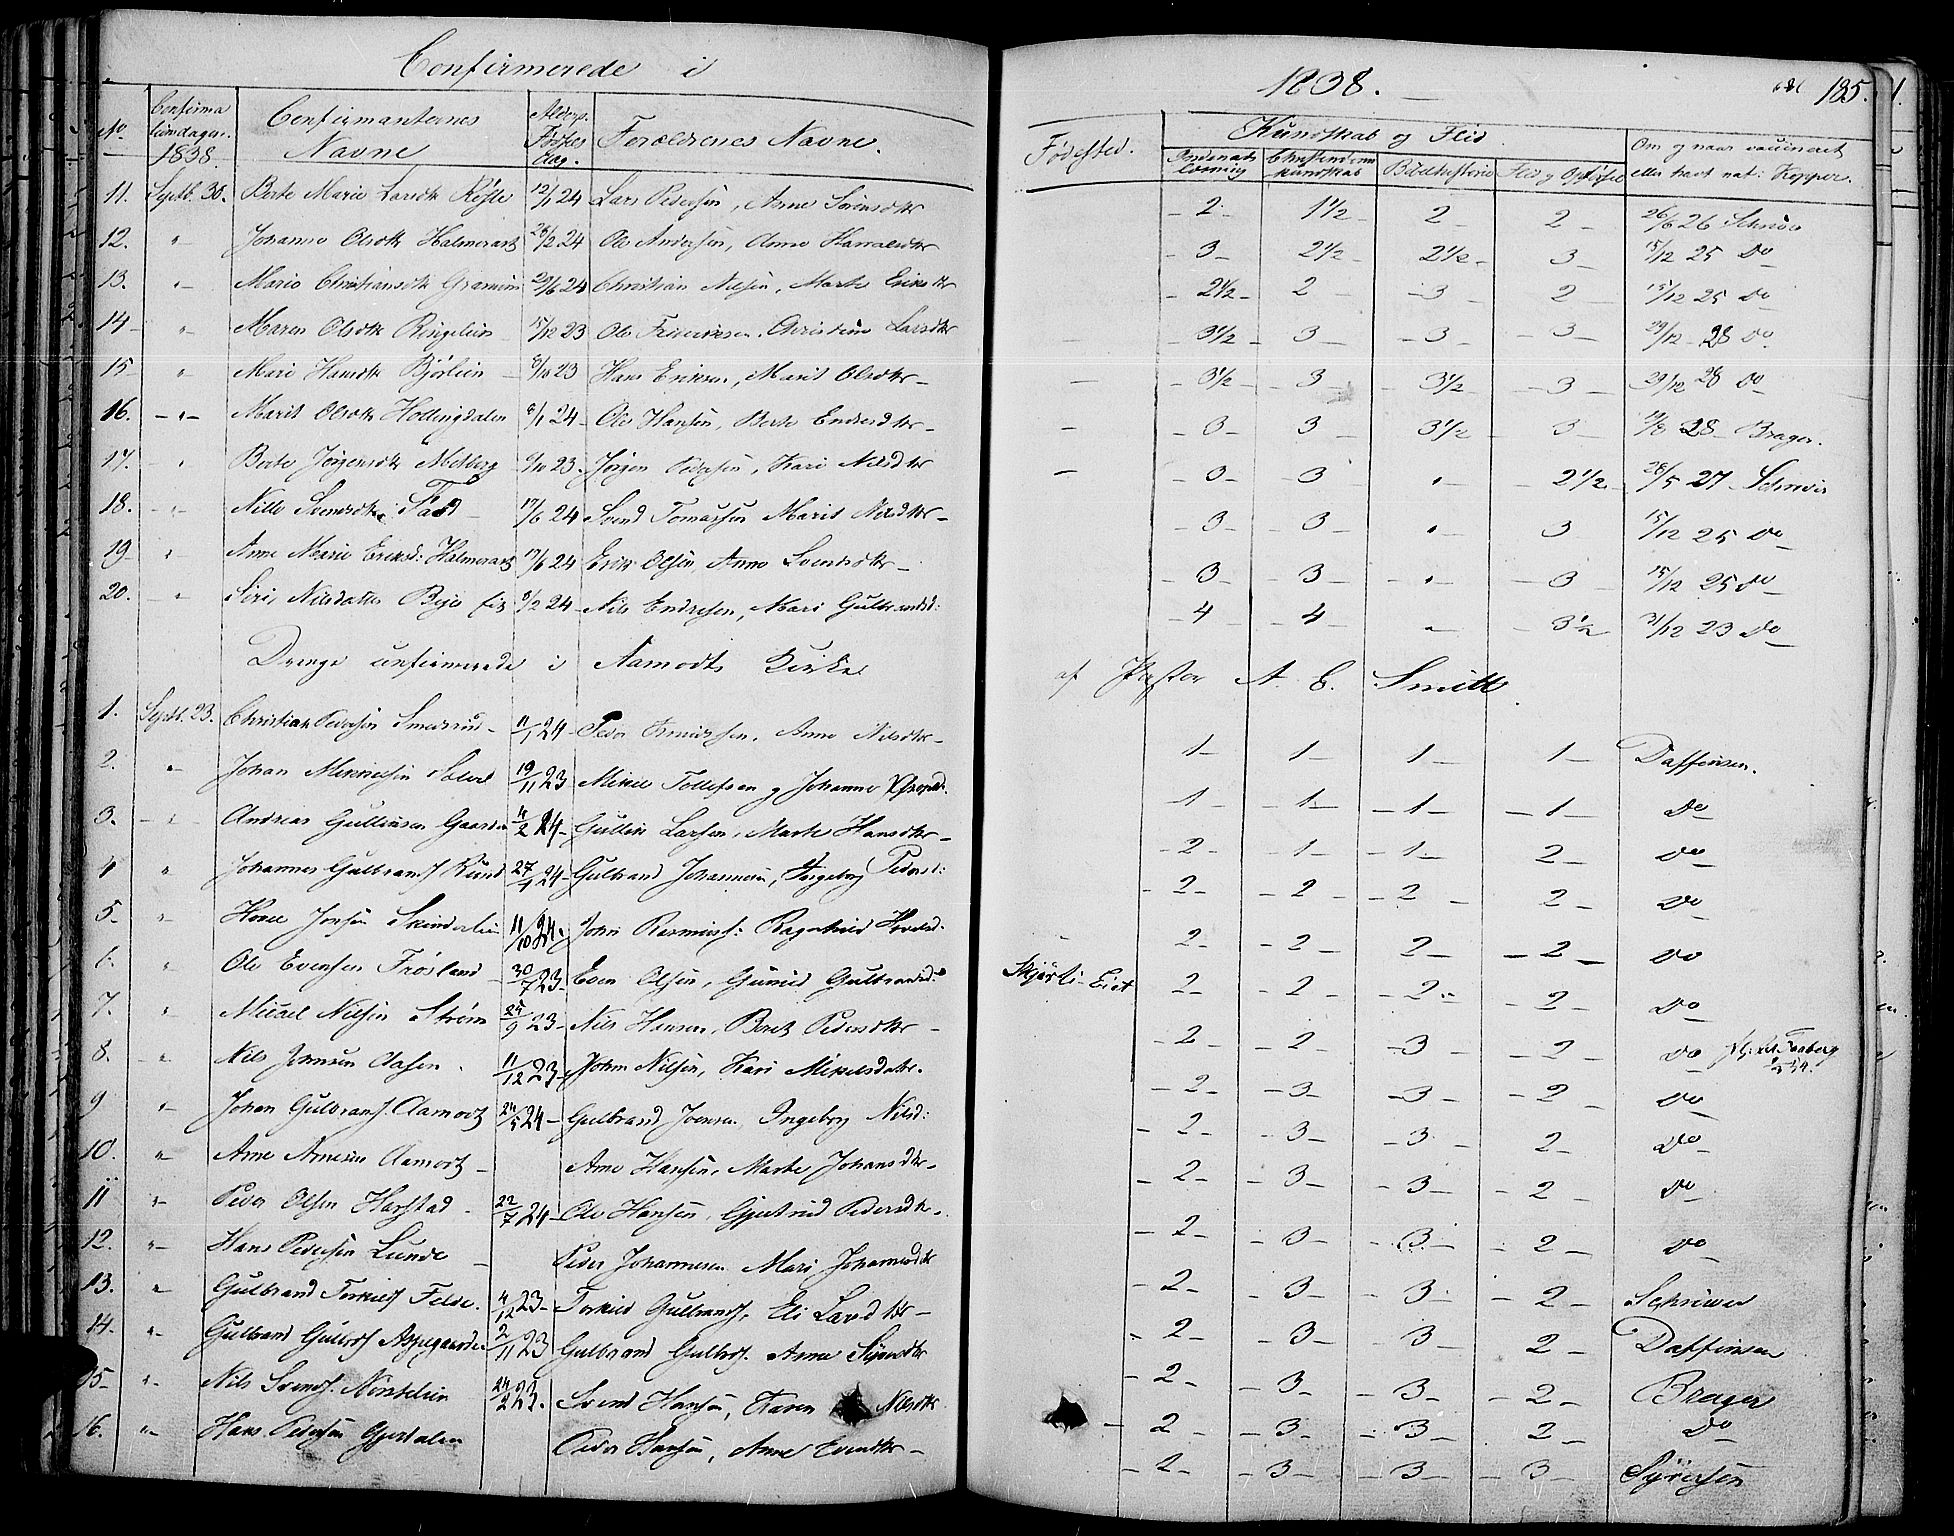 Confirmerede i 1838. 185.
No. Confirmationsdagen. 1838. Confirmanternes Navne Alder Fødselsdag. Forældrenes Navne. Fødested. Kundskab og Flid Om og naar vaccineret
Christendomskundskab Bibelhistorie Flid og Opførsel eller havt nat: Kopper.
11. Septb. 30. Berte Marie Larsdtr 12/1 24 Lars Pedersen, Anne Sørensdtr - 2 - 1½ 2 2 - 26/6 26 Schriver
12. " Johanne Olsdtr Halmerast 28/2 24 Ole Andersen, Anne Haraldsdtr - 3 - 2½ - 2½ - 3 - 15/12 25 do
13. " Marie Christiansdtr 29/6 24 Christian Nilsen, Marthe Eriksdtr - 2½ - 2 - 3 - 2 - 15/12 25 do
14 " Maren Olsdtr Ringelien 15/12 23 Ole Christine Larsdtr - 3½ - 3 - 3 - 3 - 29/12 28 do
15 " Mari Hansdtr Bjørlien 8/10 23 Hans Eriksen, Marit Olsdtr - - 3½ - 3 - 3½ - 3 - 29/12 28 do
16. " Marit Olsdtr Hollingdalen 8/1 24 - Ole Hansen, Berte Endresdtr - - 3 - 3 - 3½ - 3 - 19/8 28 - Brager.
17. " Berte Jørgensdtr 23. Jørgen Pedersen, Kari Nilsdtr - 3 - 3 " - 2½ - 28/5 27 Schriver
18. " Nille Svendsdtr 17/6 24 Svend Tomassen Marit Nilsdtr - - 3 - 3 - " 3 15/12 25 do
19 " Anne Marie Eriksd: Halmerast 17/6 24 Erik Olsen, Anne Svendsdtr - - 3 - 3 - " - 3 - 15/12 25 do
20. " Siri Nilsdatter 8/2 24 - Nils Endresen, Mari Gulbrandsd: - 4 - 4 - " - 3½ 31/12 23 do
Drenge confirmerede i Aamodts Kirke af Pastor A. C. Smith.
1. Septb. 23. Christian Pedersen Smedsrud - 11/1 24 - Peder Knudssen, Anne Nilsdtr - 1 - 1 - 1 - 1 - Daffinsen.
2. " Johan Mikkelsen 19/11 23 Mikkel Tollefsen og Johanne - 1 - - 1 - - 1 - - 1 - do
3. " Andreas Gullensen Gaarder 4/2 24 - Gullen Larsen, Marte Hansdtr - - 2 - - 1 - - 1 - 2 - do
4 " Johannes Gulbrands Ruud 27/1 24 - Gulbrand Johannesen, Ingeborg Pedersd: - 2 - - 2 - - 2 2 - do
5. " Hovel Jonsen Skinderlien 11/10 24. John Rasmuss: Ragnhild Hovelsd. 2 - - 2 - 2 - - 2 - do
6. " Ole Evensen Frøsland 30/7 23 - Even Olsen, Gunild Gulbrandsd. Skjørti - Eiet 2 - - 2 - - 2 - - 2 - do
7. " Michael Nilsen Strøm 25/9 23 - Nils Hansen, Berit Pedersdtr - - 2 - - 2 - - 3 - - 2 - do
8. " Nils Jonsen Aasen 11/12 23 - John Nilsen, Kari Mikelsdatr. - 2 - - 3 - - 3 - - 2 - do
9 " Johan Gulbrans. Aamodt 24/5 24 - Gulbrand Joensen, Ingeborg Nilsd: - 2 - - 3 - - 3 - 2 - do
10. " Arne Arnesen Aamodt - Arne Hansen, Marte Johansdtr - - 2 - - 3 - - 3 - - 2 - do
11 " Peder Olsen Harstad - 22/7 24 - Ole Hansen, Gjertrud Pedersdtr. - 2 - - 3 - - 3 - - 2 - do
12. " Hans Pedersen Lunde - Peder Johannesen Mari Johannesdtr - 2 - - 3 - - 3 - - 2 - Schriver
13. " Gulbrand Torkils Felde. 4/12 23 - Torkild Gulbrands, Eli Larsdtr - - 2 - - 3 - - 3 - 2 - Daffinsen
14. " Gulbrand Gulbrs Aspegaarden 2/11 23 Gulbrand Gulbrs. Anne - 2 - - 3 - - 3 - - 2 - Brager
15 - " Nils Svends. Nørstelien 24/2 23. Svend Hansen, Karen Nilsdtr - 2 - - 3 - - 3 - 2 - do
16. " Hans Pedersen Gjerdalen Peder Hansen, Anne Evendtr - - 2 - - 3 - - 3 - - 3 - Syversen